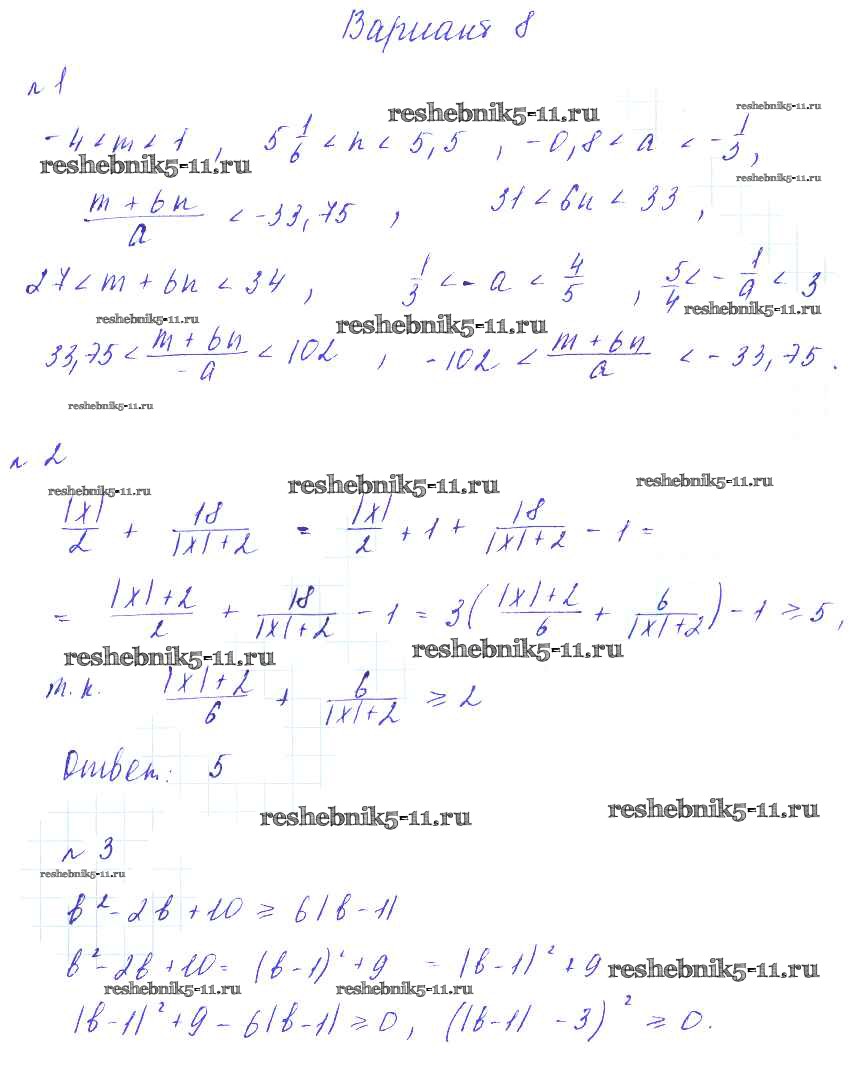 Вариант 8
№ 1
reshebnik5-11.ru reshebnik5-11.ru
-4 < m < 1 , 5 1/6 < n < 5,5 , -0,8 < a < -1/3 ,
reshebnik5-11.ru reshebnik5-11.ru
(m + 6n)/a < -33,75 , 31 < 6n < 33 ,
27 < m + 6n < 34 , 1/3 < -a < 4/5 , 5/4 < -1/a < 3
reshebnik5-11.ru reshebnik5-11.ru reshebnik5-11.ru
33,75 < (m + 6n)/-a < 102 , -102 < (m + 6n)/a < -33,75 .
reshebnik5-11.ru
№ 2
reshebnik5-11.ru reshebnik5-11.ru reshebnik5-11.ru
|x|/2 + 18/(|x|+2) = |x|/2 + 1 + 18/(|x|+2) - 1 =
= (|x|+2)/2 + 18/(|x|+2) - 1 = 3((|x|+2)/6 + 6/(|x|+2)) - 1 ≥ 5 ,
reshebnik5-11.ru reshebnik5-11.ru
т.к. (|x|+2)/6 + 6/(|x|+2) ≥ 2
Ответ: 5
reshebnik5-11.ru reshebnik5-11.ru
№ 3
reshebnik5-11.ru
b² - 2b + 10 ≥ 6|b-1|
b² - 2b + 10 = (b-1)² + 9 = |b-1|² + 9 reshebnik5-11.ru
reshebnik5-11.ru reshebnik5-11.ru
|b-1|² + 9 - 6|b-1| ≥ 0, (|b-1| - 3)² ≥ 0.